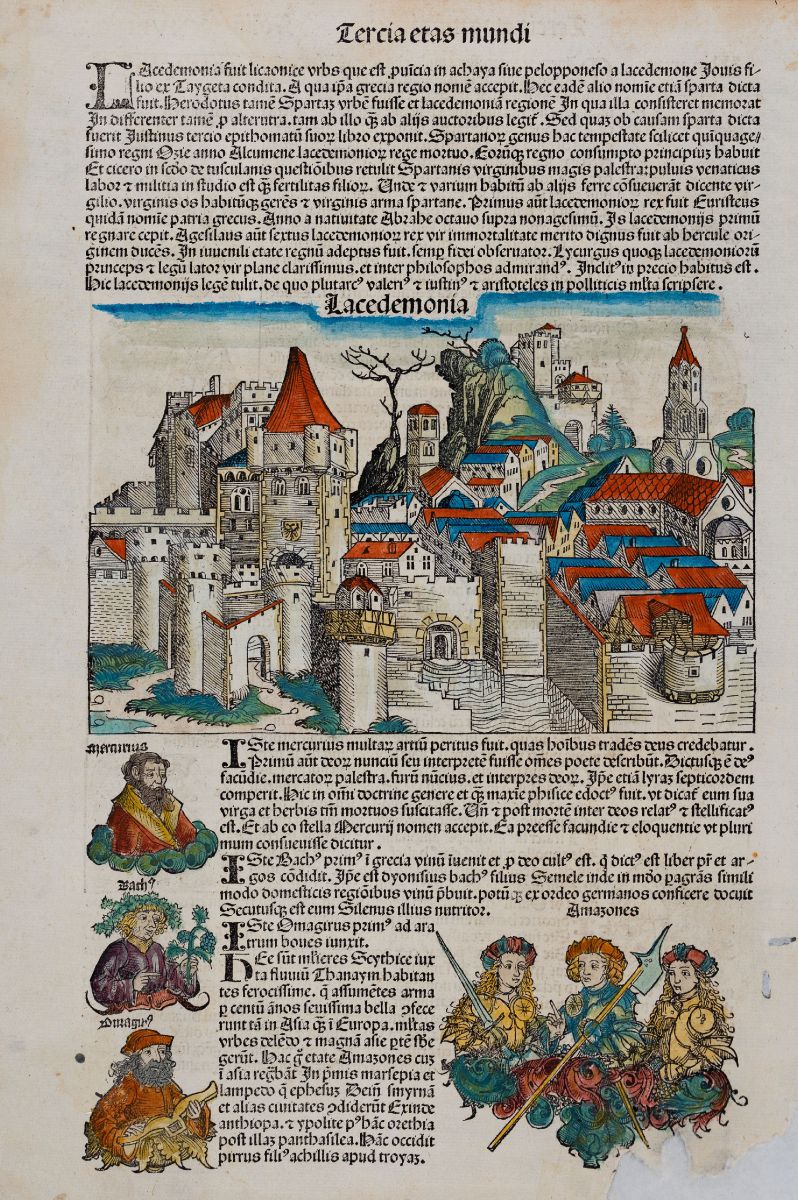 Tercia etas mundi
LAcedemonia fuit licaonice vrbs que est ꝓuīcia in achaya siue pelopponeso a lacedemone Jouis fi-
lio ex Taygeta condita. A qua ip̄a grecia regio nomē accepit. Hec eadē alio nomīe etiā sparta dicta
fuit. Herodotus tamē Spartaꝫ vrbē fuisse et lacedemoniā regionē In qua illa consisteret memorat
In differenter tamē ꝓ alterutra. tam ab illo qꝫ ab alijs auctoribus legit᷑. Sed quaꝫ ob causam sparta dicta
fuerit Justinus tercio epithomatū suoꝝ libro exponit. Spartanoꝝ genus hac tempestate scilicet quīquage-
simo regni Ozie anno Alcumene lacedemonioꝝ rege mortuo. Eorūqꝫ regno consumpto principiuꝫ habuit
Et cicero in scd̄o de tusculanis questiōibus retulit Spartanis virginibus magis palestra: puluis venaticus
labor ⁊ militia in studio est qꝫ fertilitas filioꝝ. Unde ⁊ varium habitū ab alijs ferre cōsueuerāt dicente vir-
gilio. virginis os habitūqꝫ gerēs ⁊ virginis arma spartane. Primus aūt lacedemonioꝝ rex fuit Euristeus
quidā nomīe patria grecus. Anno a natiuitate Abrahe octauo supra nonagesimū. Is lacedemonijs primū
regnare cepit. Agesilaus aūt sextus lacedemonioꝝ rex vir immortalitate merito dignus fuit ab hercule ori-
ginem ducēs. In iuuenili etate regnū adeptus fuit. semꝑ fidei obseruator. Lycurgus quoqꝫ lacedemoniorū
princeps ⁊ legū lator vir plane clarissimus. et inter philosophos admirandꝰ. Inclitꝰ in precio habitus est.
Hic lacedemonijs legē tulit. de quo plutarcꝰ valeriꝰ ⁊ iustinꝰ ⁊ aristoteles in polliticis ml̄ta scripsere.
Lacedemonia
Mercurius
ISte mercurius multaꝝ artiū peritus fuit. quas hoībus tradēs deus credebatur.
Primū aūt deoꝝ nunciū seu interpretē fuisse om̄es poete describūt. Dictusqꝫ ē deꝰ
facūdie. mercatoꝝ palestra. furū nūcius. et interpres deoꝝ. Ip̄e etiā lyraꝫ septicordem
comperit. Hic in om̄i doctrine genere et qꝫ maxīe phisice edoctꝰ fuit. vt dicat᷑ eum sua
virga et herbis tm̄ mortuos suscitasse. Un̄ ⁊ post mortē inter deos relatꝰ ⁊ stellificatꝰ
est. Et ab eo stella Mercurij nomen accepit. Ea preesse facundie ⁊ eloquentie vt pluri
mum consueuisse dicitur.
Bachꝰ
ISte Bachꝰ primꝰ ī grecia vinū īuenit et ꝓ deo cultꝰ est. q̄ dictꝰ est liber pr̄ et ar-
gos cōdidit. Ip̄e est dyonisius bachꝰ filius Semele inde in mōo ꝑagrās simili
modo domesticis regiōibus vinū p̄buit. potū qꝫ ex ordeo germanos conficere docuit
Secutusqꝫ est eum Silenus illius nutritor.
Amazones
ISte Omagirus primꝰ ad ara
trum boues iunxit.
Omagirꝰ
HEe sūt ml̄ieres Scythice iux
ta fluuiū Thanaym habitan
tes ferocissime. q̄ assumētes arma
ꝑ centū ānos seuissima bella ↄfece
runt tā in Asia qꝫ ī Europa. ml̄tas
vrbes delēdo ⁊ magnā asie ꝑtē sbᷣe
gerūt. Hac q̄ etate Amazones cuꝫ
ī asia regbāt In p̄mis marsepia et
lampedo q̄ ephesuꝫ Dein̄ smyrnā
et alias ciuitates ↄdiderūt Exinde
anthiopa. ⁊ ypolite pꝰ hāc orethia
post illaꝫ panthasilea. Hāc occidit
pirrus filiꝰ achillis apud troyaꝫ.